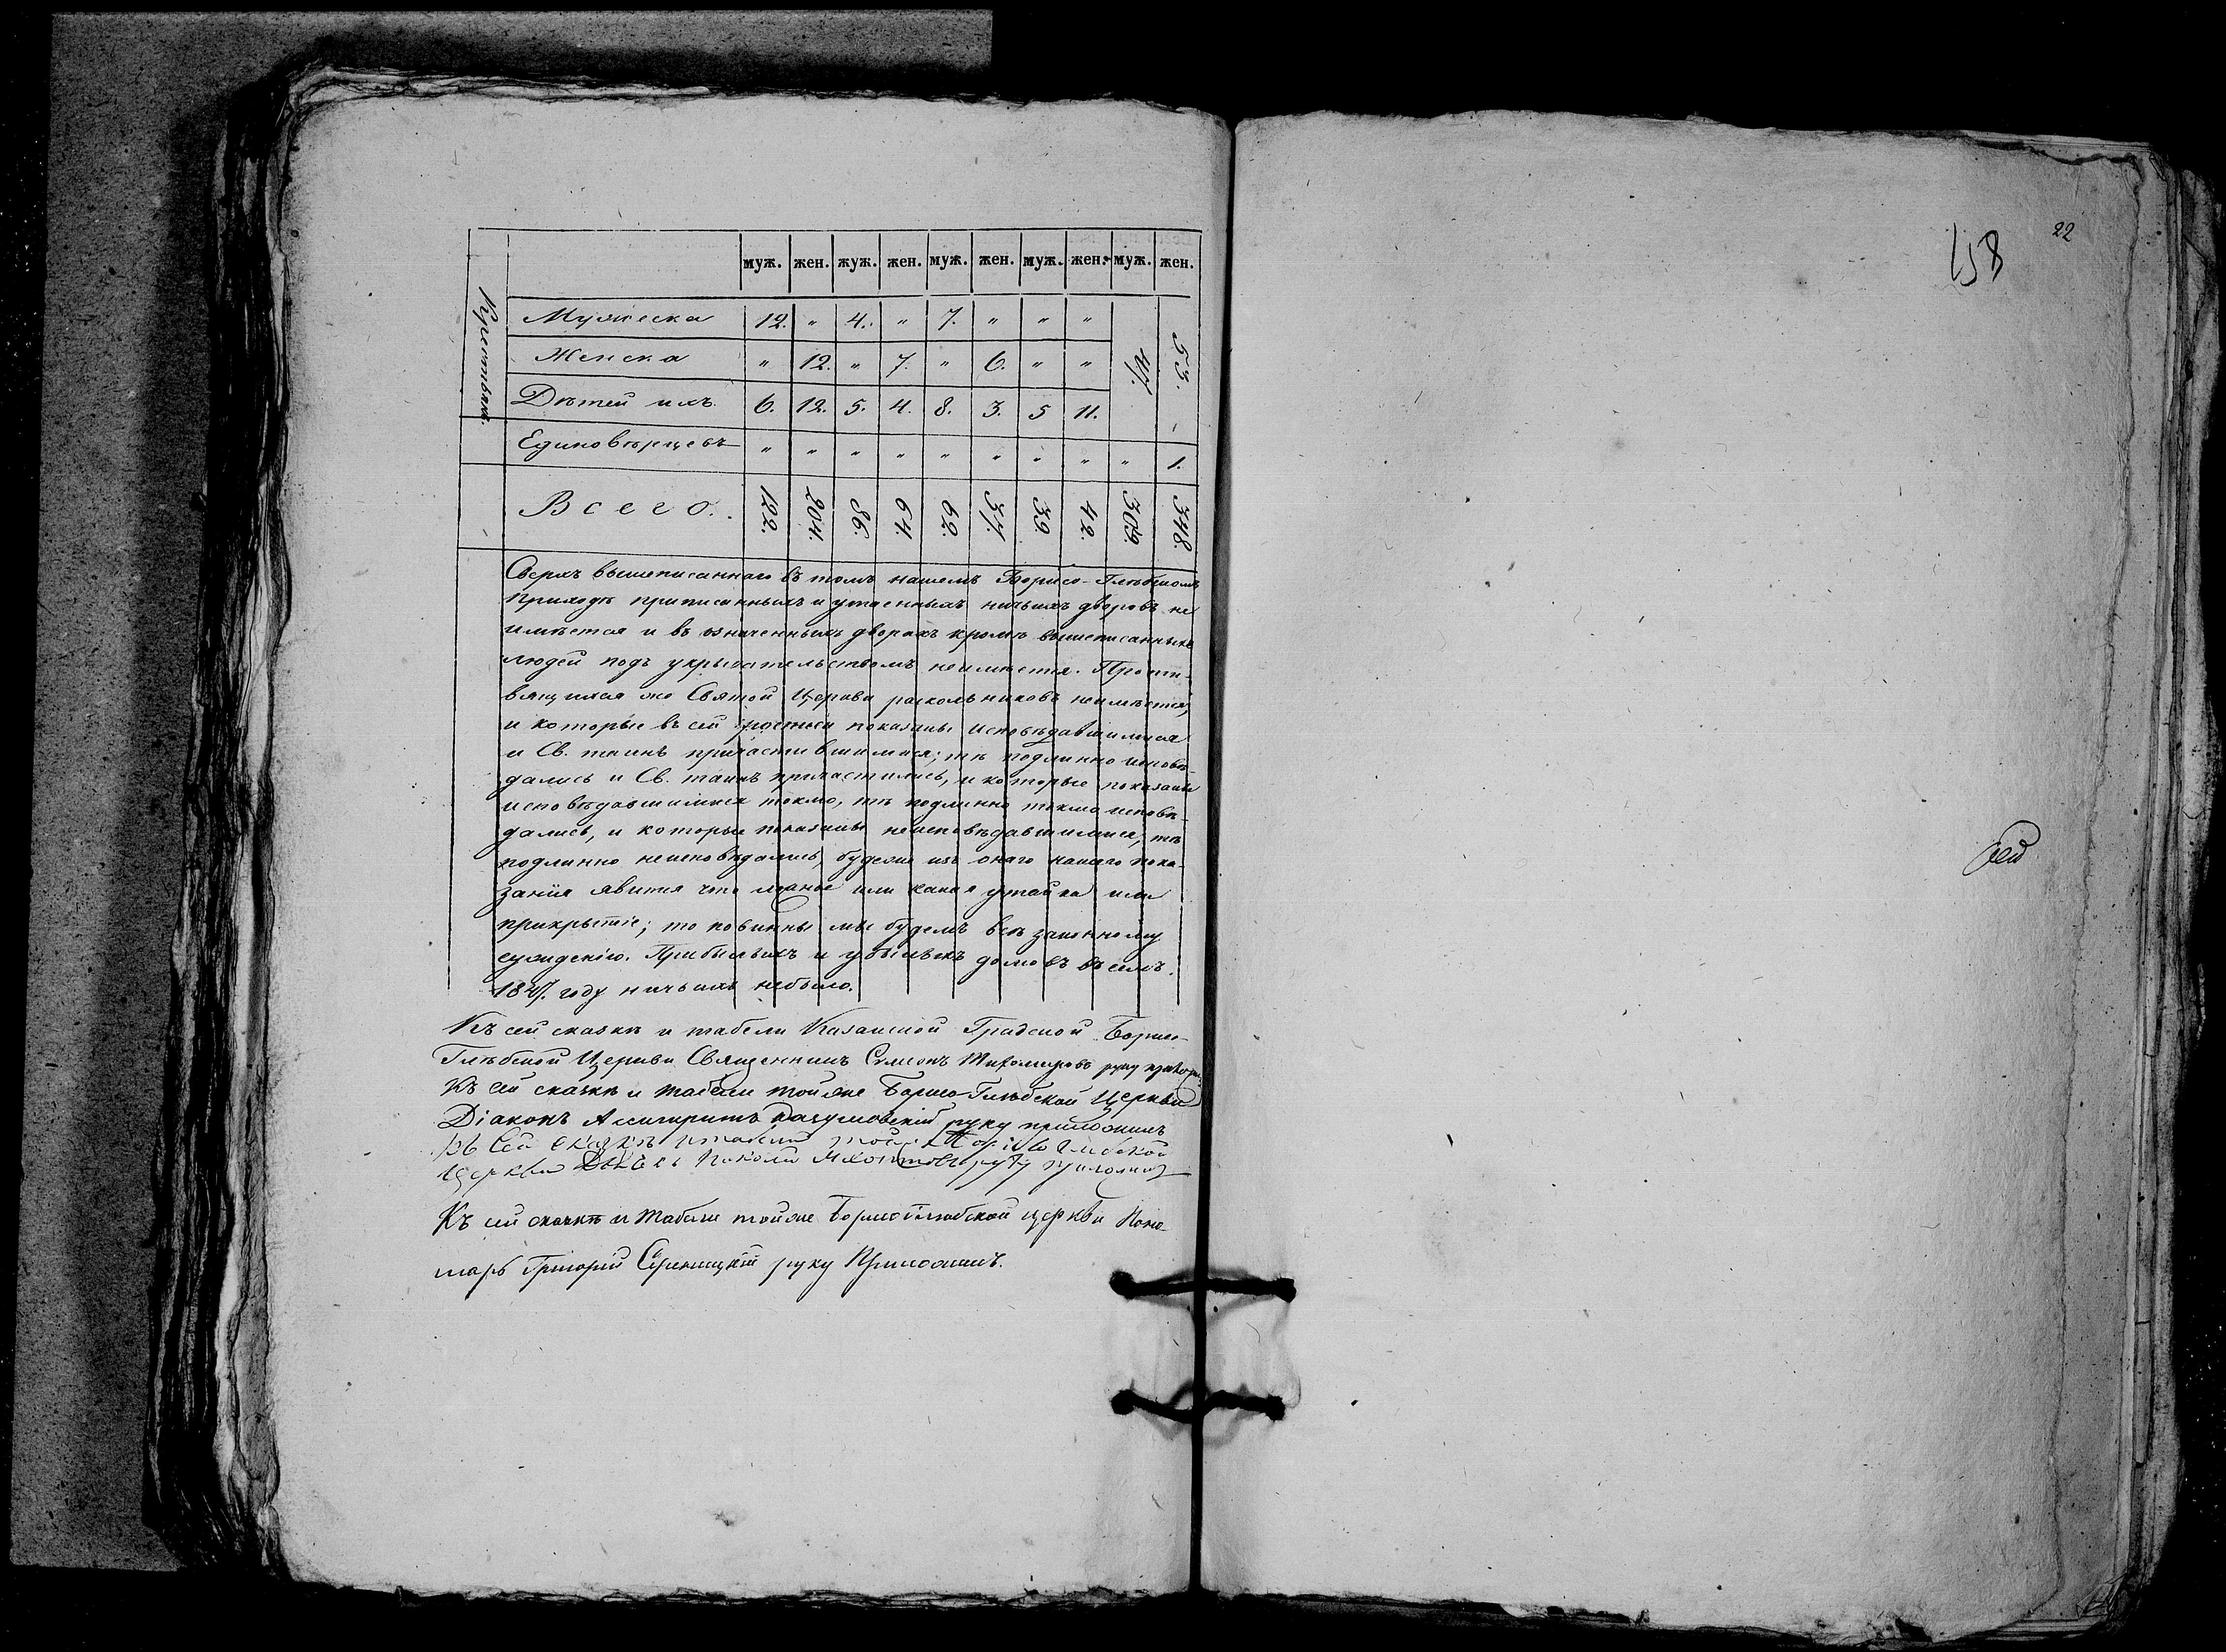 муж. жен. муж. жен. муж. жен. муж. жен. муж. жен.
Крестьян.
Мужеска 12. " 4. " 7. " " "
Женска " 12. " 7. " 6. " " 47. 53.
Дѣтей ихъ 6. 12. 5. 4. 8. 3. 5 11.
Единовѣрцевъ " " " " " " " " " 1.
Всего. 122. 204. 86. 64. 62. 37. 39. 42. 309. 348.
Сверхъ вышеписаннаго въ томъ нашемъ Борисо-Глѣбскомъ
Приходѣ приписанныхъ и утаенныхъ ничьихъ дворовъ не
имѣется и въ означенныхъ дворахъ кромѣ вышеписанныхъ
людей подъ укрывательствомъ неимѣется. Проти-
вящихся же Святой Церкви раскольниковъ неимѣется,
и которые въ сей росписи показаны исповѣдавшимися
и Св. таинъ причастившимися; тѣ подлинно исповѣ-
дались и Св. таинъ причастились, и которые показаны
исповѣдавшимися токмо, тѣ подлинно токмо исповѣ-
дались, и которые показаны неисповѣдавшимися, тѣ
подлинно неисповѣдались, будеже изъ онаго нашего пока-
занія явится что ложное или какая утайка или
прикрытіе; то повинны мы будемъ всѣ законному
сужденію. Прибылыхъ и убылыхъ домовъ въ семъ
1847. году ничьихъ небыло.
Къ сей сказкѣ и табели Казанской Градской Борисо-
Глѣбской Церкви Священникъ Симеонъ Тихомировъ руку
Къ сей сказкѣ и табели тойже Борисо-Глѣбской Церкви
Діаконъ руку приложилъ
Къ сей сказкѣ и табели тойже
церкви руку приложилъ
Къ сей сказкѣ и табели тойже Борисоглѣбской церкви Поно-
марь Григорій руку Приложилъ.
158
22